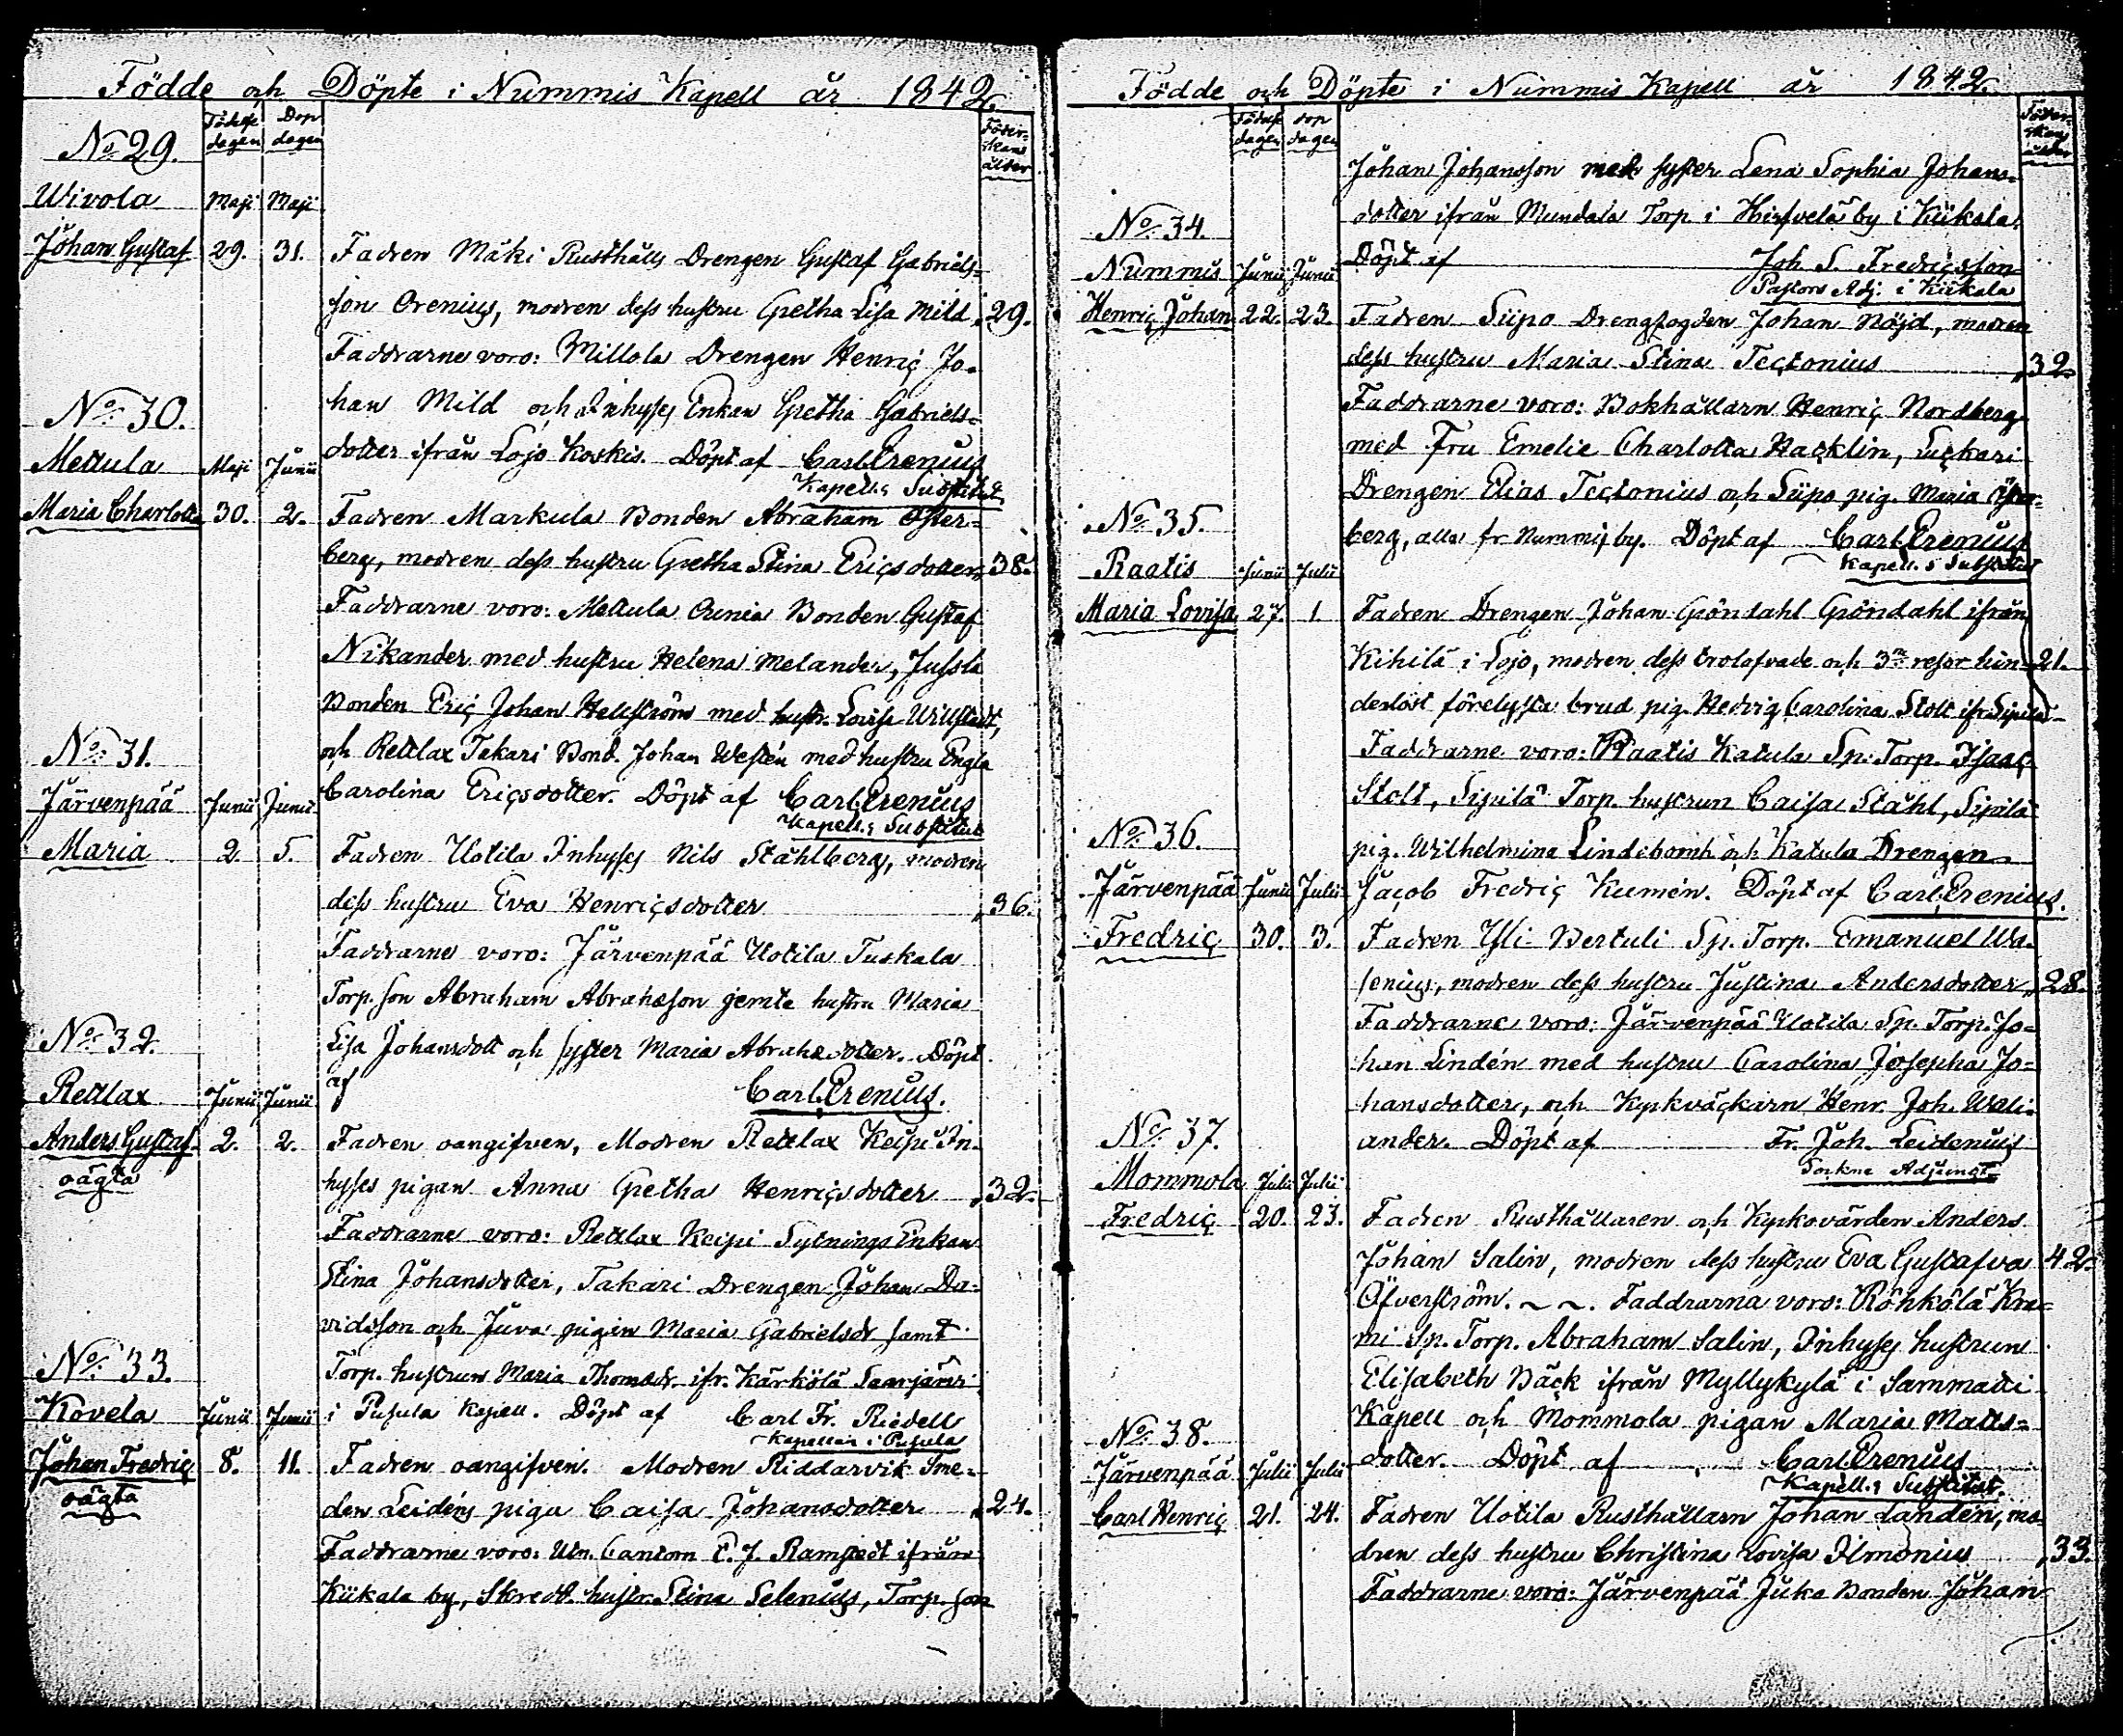 Födde och Döpte i Nummis Kapell år 1842.
No 29.
Födelse dagen
Dop dagen
Föder-
skans
ålder
Wivola Maji Maji
Johan Gustaf 29. 31. Fadren Mäki Rusthålls Drengen Gustaf Gabriels-
son Orenius, modren dess hustru Gretha Lisa Mild „29.
Faddrarne voro: Millola Drengen Henriç Jo-
han Mild och Inhyses Enkan Gretha Gabriels-
dotter ifrån Lojo Koskis. Döpt af Carl Erenius
Kapell.s Substitut
No 30.
Mettula Maji Junii
Maria Charlotta 30. 2. Fadren Markula Bonden Abraham Öster-
berg, modren dess hustru Gretha Stina Ericsdotter „38.
Faddrarne voro: Mettula Ounia Bonden Gustaf
Nikander med hustru Helena Melander, Jussla
Bonden Eriç Johan Hellström med hustr. Lovisa Willstedt,
och Retlax Takari Bond. Johan Westén med hustru Engla
Carolina Ericsdotter. Döpt af Carl Erenius
Kapell.s Substitut
No 31.
Järvenpää Junii Junii
Maria 2. 5. Fadren Uotila Inhyses Nils Ståhlberg, modren
dess hustru Eva Henriçsdotter „36.
Faddrarne voro: Järvenpää Uotila Tuskala
Torp. son Abraham Abrahasson jemte hustru Maria
Lisa Johansdott och syster Maria Abrahasdotter. Döpt
af Carl Erenius.
No 32.
Retlax Junii Junii
Anders Gustaf 2. 2. Fadren oangifven, Modren Retlax Keipi In-
oägta
hyses pigan Anna Gretha Henriçsdotter „32.
Faddrarne voro: Retlax Keipi Sytnings Enkan
Stina Johansdotter, Takari Drengen Johan Da-
vidsson och Juva pigan Maria Gabrielsdr samt
Torp. hustrun Maria Thomasdr. ifr. Kärkölä Saarijärvi
i Pusula Kapell. Döpt af Carl Fr. Riedell
Kapellan i Pusula
No 33.
Kovela Junii Junii
Johan Fredriç 8. 11. Fadren oangifven. Modren Riddarvik Sme-
oägta
den Leidéns piga Caisa Johansdotter „24.
Faddrarne voro: Utn. Cantorn C. J. Ramstedt ifrån
Kiikala by, Skredd. hustr. Stina Selenius, Torp. son
Födde och Döpte i Nummis Kapell år 1842.
Födelse dagen
dop dagen
Föder-
skans
ålder
Johan Johansson med syster Lena Sophia Johans-
dotter ifrån Mundala Torp i Hirsvelä by i Kiikala.
Döpt af Joh. S. Fredriçsson
Pastors Adj. i Kiikala
No 34.
Nummis Junii Junii
Henriç Johan 22. 23. Fadren Siipo Drengfogden Johan Nöjd, modren
dess hustru Maria Stina Teçtonius „32.
Faddrarne voro: Bokhållarn Henriç Nordberg
med Fru Emelie Charlotta Haçklin, Luçkari
Drengen Elias Teçtonius och Siipo pig. Maria Öster-
berg, alla fr. Nummis by. Döpt af Carl Erenius
Kapell.s Substitut
No 35.
Raatis Junii Julii
Maria Lovisa 27. 1. Fadren Drengen Johan Gröndahl Gröndahl ifrån
Kihilä i Lojo, modren dess trolofvade och 3ne resor hin- „21.
derlöst förelysta brud pig. Hedvig Carolina Stolt ifr. Sipilä
Faddrarne voro: Raatis Katula Sp. Torp. Isaaç
Stolt, Sipilä Torp. hustrun Caisa Ståhl, Sipilä
pig. Wilhelmina Lindebomb och Katula Drengen
Jaçob Fredriç Kumén. Döpt af Carl Erenius.
No 36.
Järvenpää Junii Julii
Fredriç 30. 3. Fadren Yli Bertuli Sp. Torp. Emanuel Wa-
senius, modren dess hustru Justina Andersdotter „28.
Faddrarne voro: Järvenpää Uotila Sp. Torp. Jo-
han Lindén med hustru Carolina Josepha Jo-
hansdotter, och Kyrkväçkarn Henr. Joh. Wali-
ander. Döpt af Fr. Joh. Leidenius
Sockne Adjunct.
No 37.
Mommola Julii Julii
Fredriç 20. 23. Fadren Rusthållaren och Kyrkovärden Anders
Johan Salin, modren dess hustru Eva Gustafva 42.
Öfverström. ~ ~. Faddrarna voro: Röhkölä Kra-
mi Sp. Torp. Abraham Salin, Inhyses hustrun
Elisabeth Bäck ifrån Myllykylä i Sammatti
Kapell och Mommola pigan Maria Matts-
dotter. Döpt af Carl Erenius
Kapell.s Substitut.
No 38.
Järvenpää Julii Julii
Carl Henriç 21. 24. Fadren Uotila Rusthållarn Johan Landén, mo-
dren dess hustru Christina Lovisa Ilmonius „33.
Faddrarne voro: Järvenpää Juka Bonden Johan